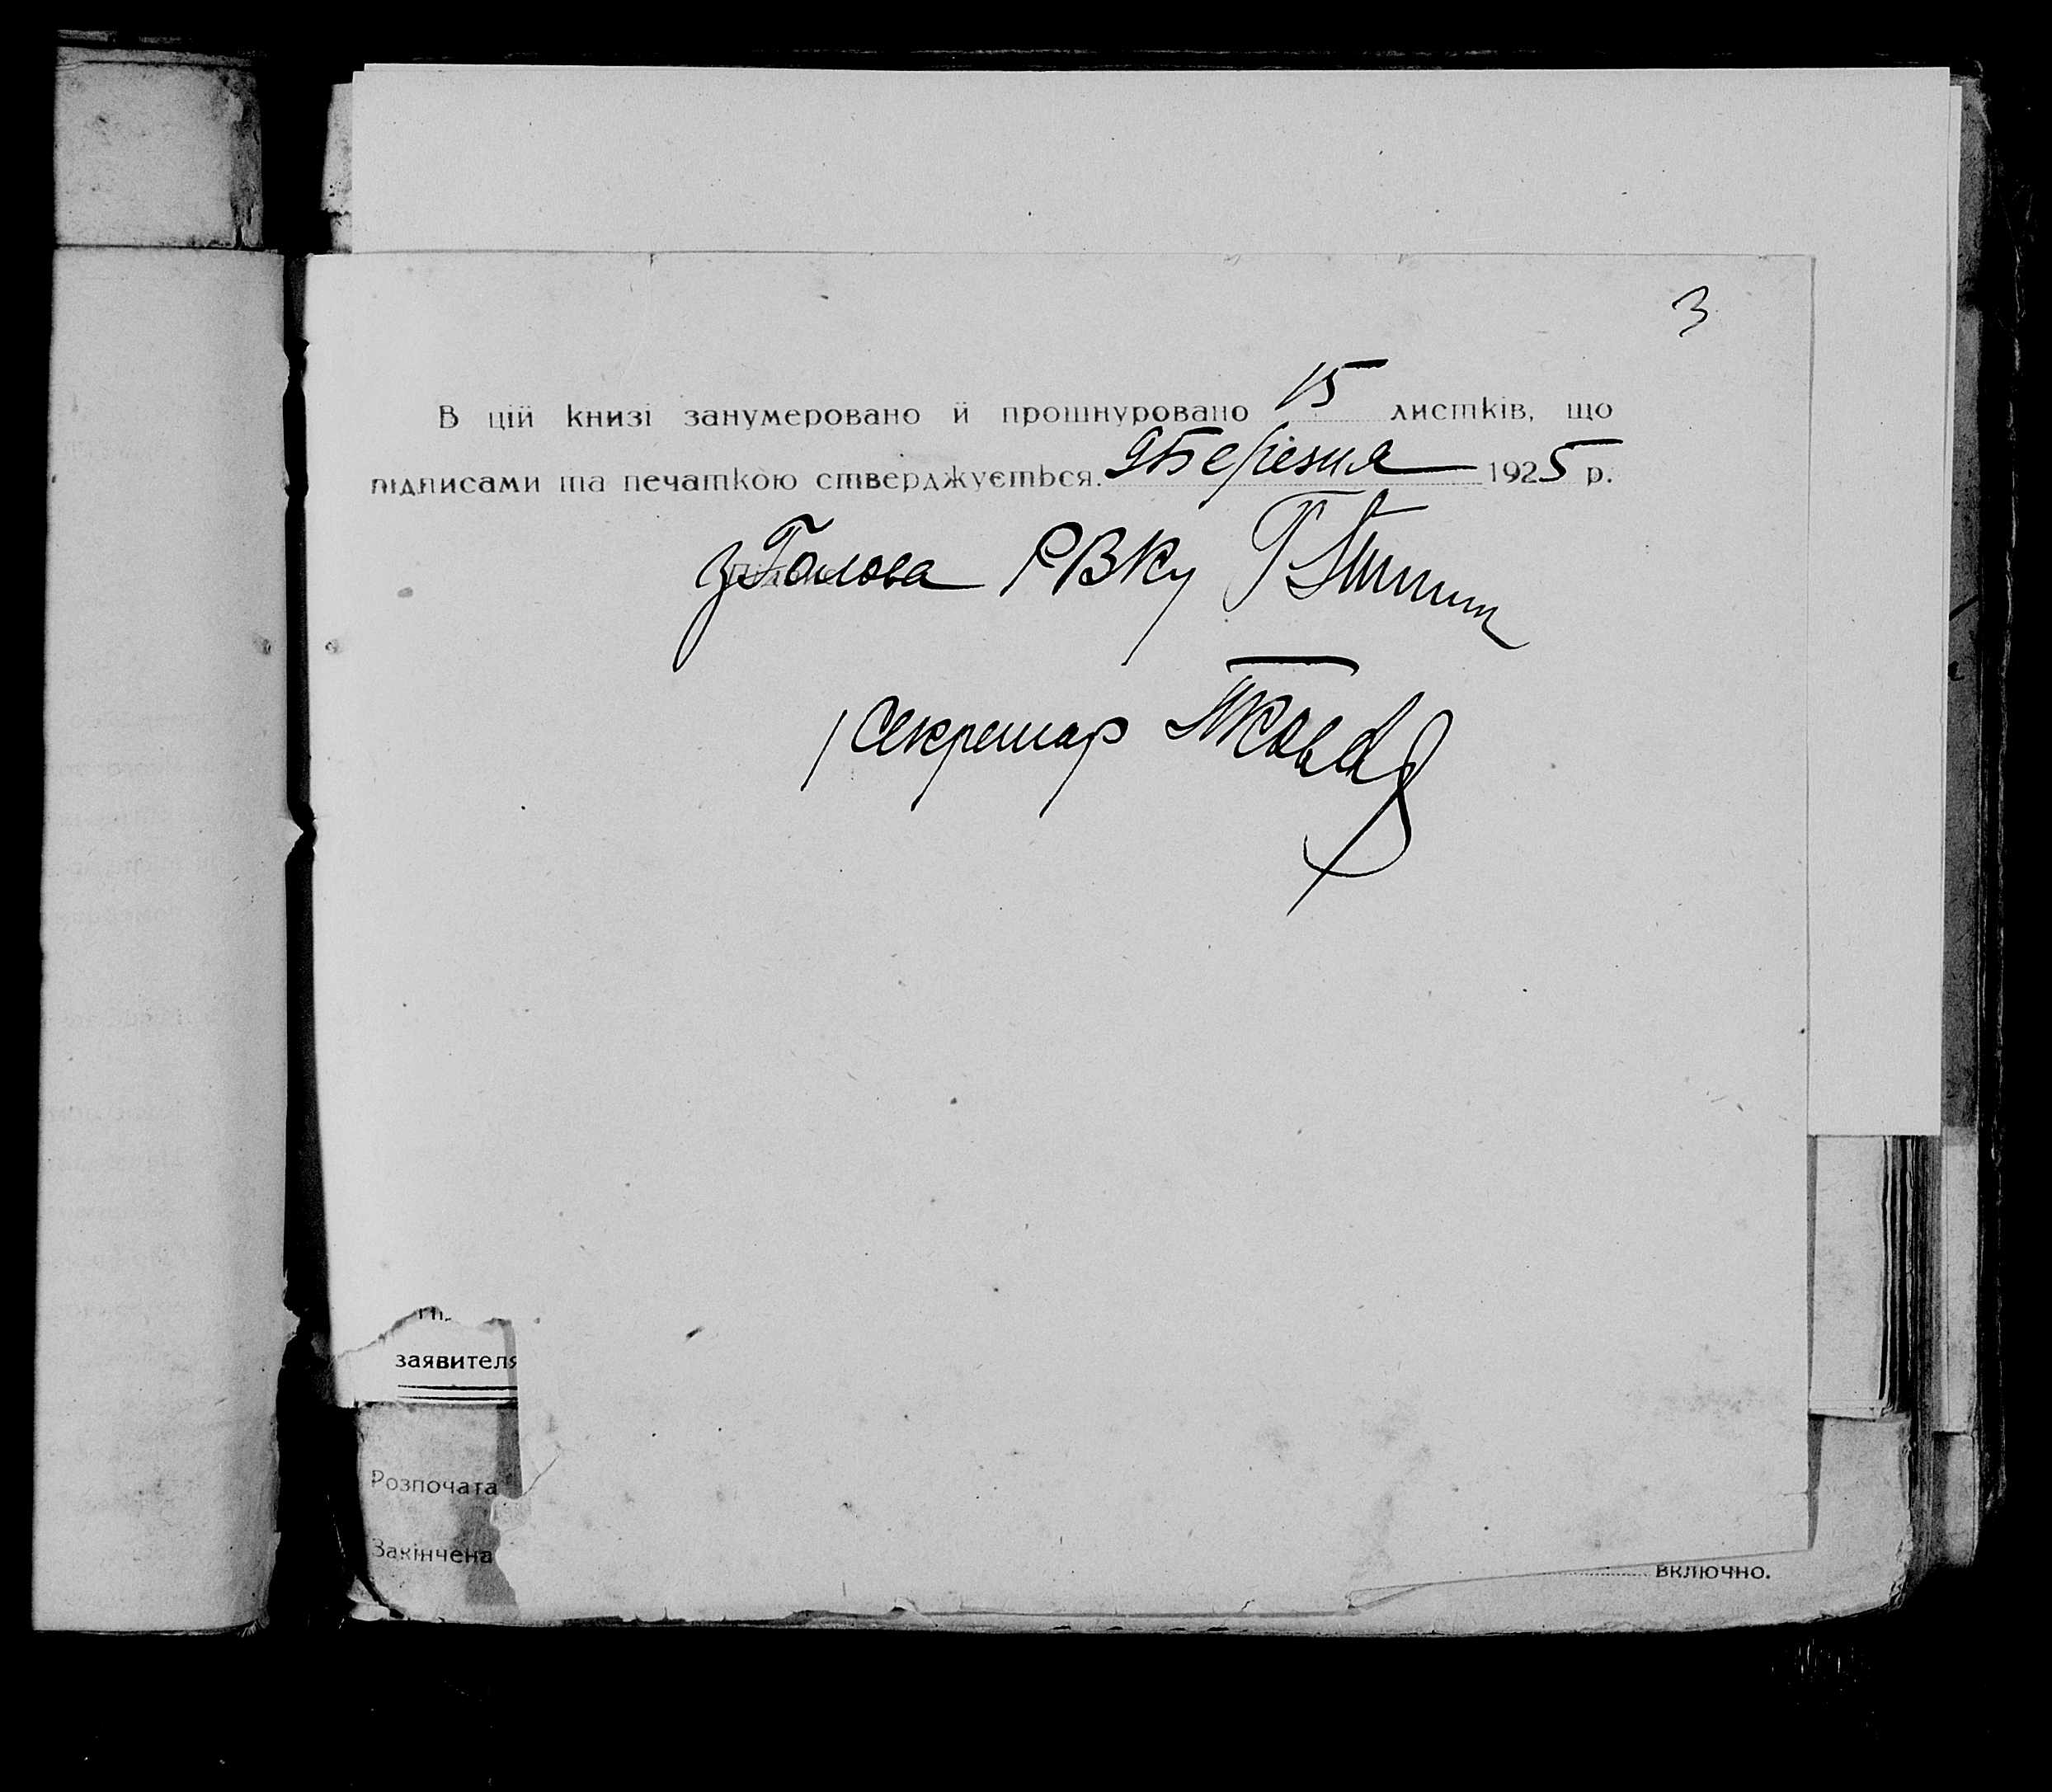 3
В цій книзі занумеровано й прошнуровано 15 листків, що
підписами та печаткою стверджується. 9 Березня 1925 р.
з Голова РВКу
Секретар
заявителя
Розпочата
Закінчена
включно.